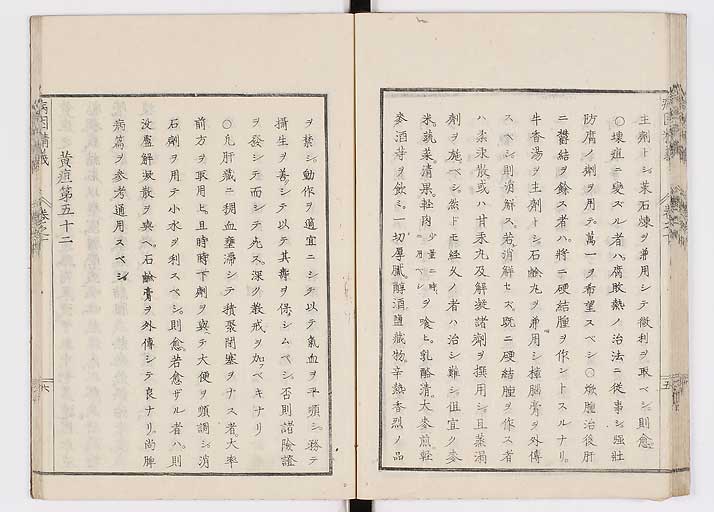 主劑トシ菜石煉ヲ兼用シテ微利ヲ取ベシ則愈
○壊疽ニ變ズル者ハ腐敗熱ノ治法ニ従事シ強壯
防腐ノ劑ヲ用テ萬一ヲ希望スベシ○焮腫治後肝
ニ鬱結ヲ餘ス者ハ將ニ硬結腫ヲ作ントスルナリ
牛香湯ヲ主劑トシ石鹸丸ヲ兼用シ樟腦膏ヲ外傳
スベシ則消解ス若消解セズ既ニ硬結腫ヲ作ス者
ハ柔汞散或ハ甘汞丸及解凝諸劑ヲ撰用シ且蒸溻
劑ヲ施ベシ然ドモ經久ノ者ハ治シ難シ但宜ク麥
米蔬菜清果軽肉少量ニ時ニ用ベシヲ喰ヒ乳酪清大麥煎軽
麥酒等ヲ飲ミ一切厚膩醇酒鹽蔵物辛熱香烈ノ品
ヲ禁シ動作ヲ適宜ニシテ以テ氣血ヲ平順シ務テ
攝生ヲ善シテ以テ其壽ヲ保シムベシ否則諸險證
ヲ發シテ而シテ丸ス深ク教戒ヲ加ベキナリ
○凡肝藏ニ稠血壅滞シテ積聚閉塞ヲナス者大率
前方ヲ取用ヒ且時時下劑ヲ與テ大便ヲ順調シ消
石劑ヲ用テ小水ヲ利スベシ則愈若愈ザル者ハ則
汝盧解凝散ヲ與ヘ石鹸膏ヲ外傳シテ良ナリ尚脾
病篇ヲ參考通用スベシ
黄疸第五十二
病因精義
巻之十
六
五